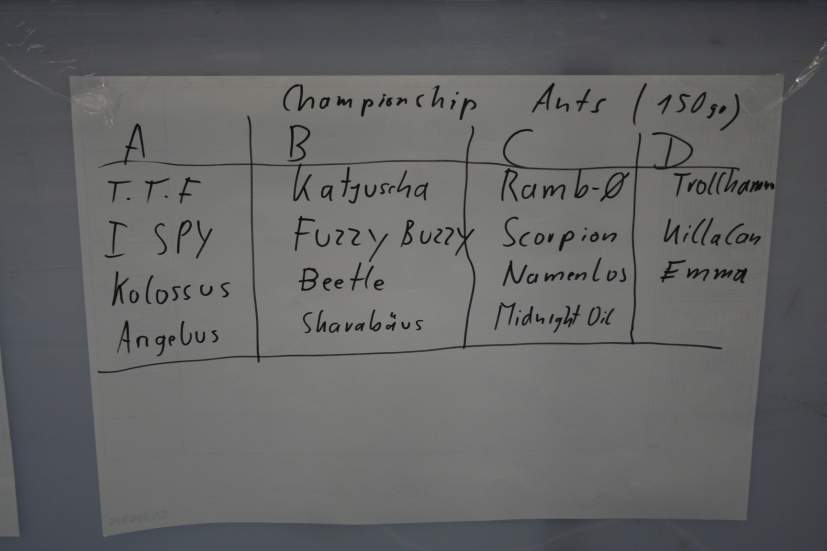 Championchip Ants (150gr)
A B C D
T.T.F Katjuscha Ramb-Ø Trollhamm
I SPY Fuzzy Buzzy Scorpion Killacan
Kolossus Beetle Namenlos Emma
Angebus Sharabäus Midnight Oil
SIEMENS